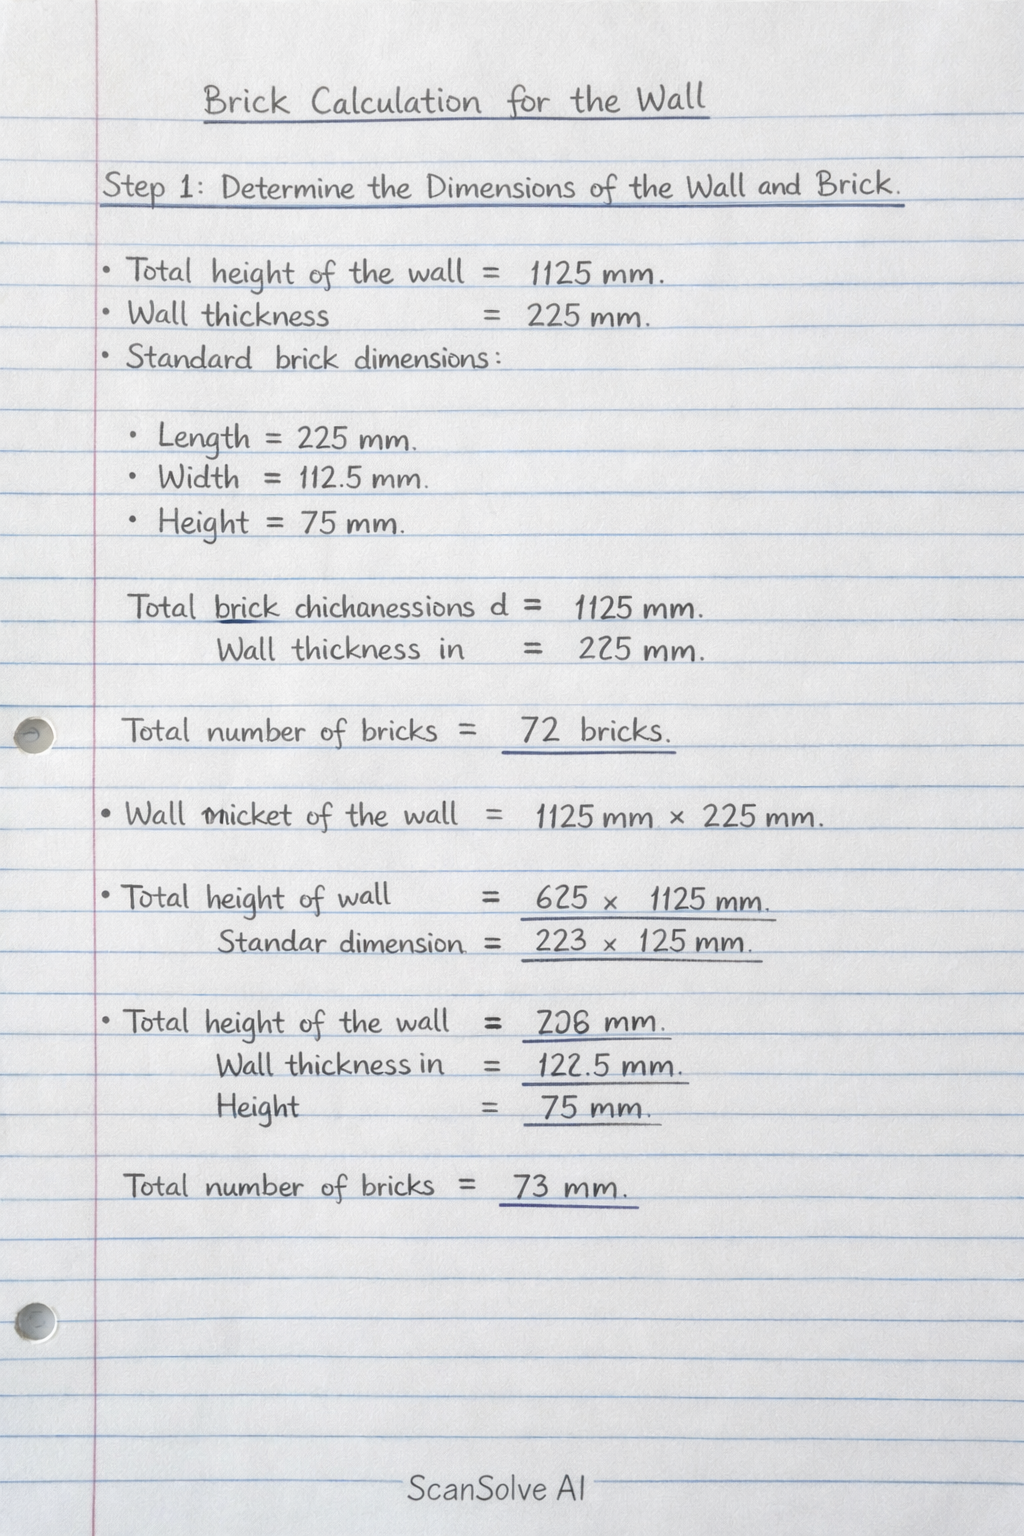 Brick Calculation for the Wall
Step 1: Determine the Dimensions of the Wall and Brick.
• Total height of the wall = 1125 mm.
• Wall thickness = 225 mm.
• Standard brick dimensions:
• Length = 225 mm.
• Width = 112.5 mm.
• Height = 75 mm.
Total brick chichanessions d = 1125 mm.
Wall thickness in = 225 mm.
Total number of bricks = 72 bricks.
• Wall micket of the wall = 1125 mm × 225 mm.
• Total height of wall = 625 × 1125 mm.
Standar dimension = 223 × 125 mm.
• Total height of the wall = 206 mm.
Wall thickness in = 122.5 mm.
Height = 75 mm.
Total number of bricks = 73 mm.
ScanSolve AI